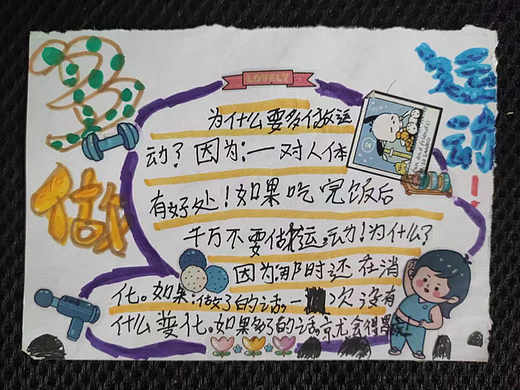 多
做
运动!
LOVELY
为什么要多做运
动?因为:一对人体
有好处!如果吃完饭后
千万不要做运动!为什么?
因为那时还在消
化。如果做了的话,一次没有
什么变化。如果多了的话,就会得胃